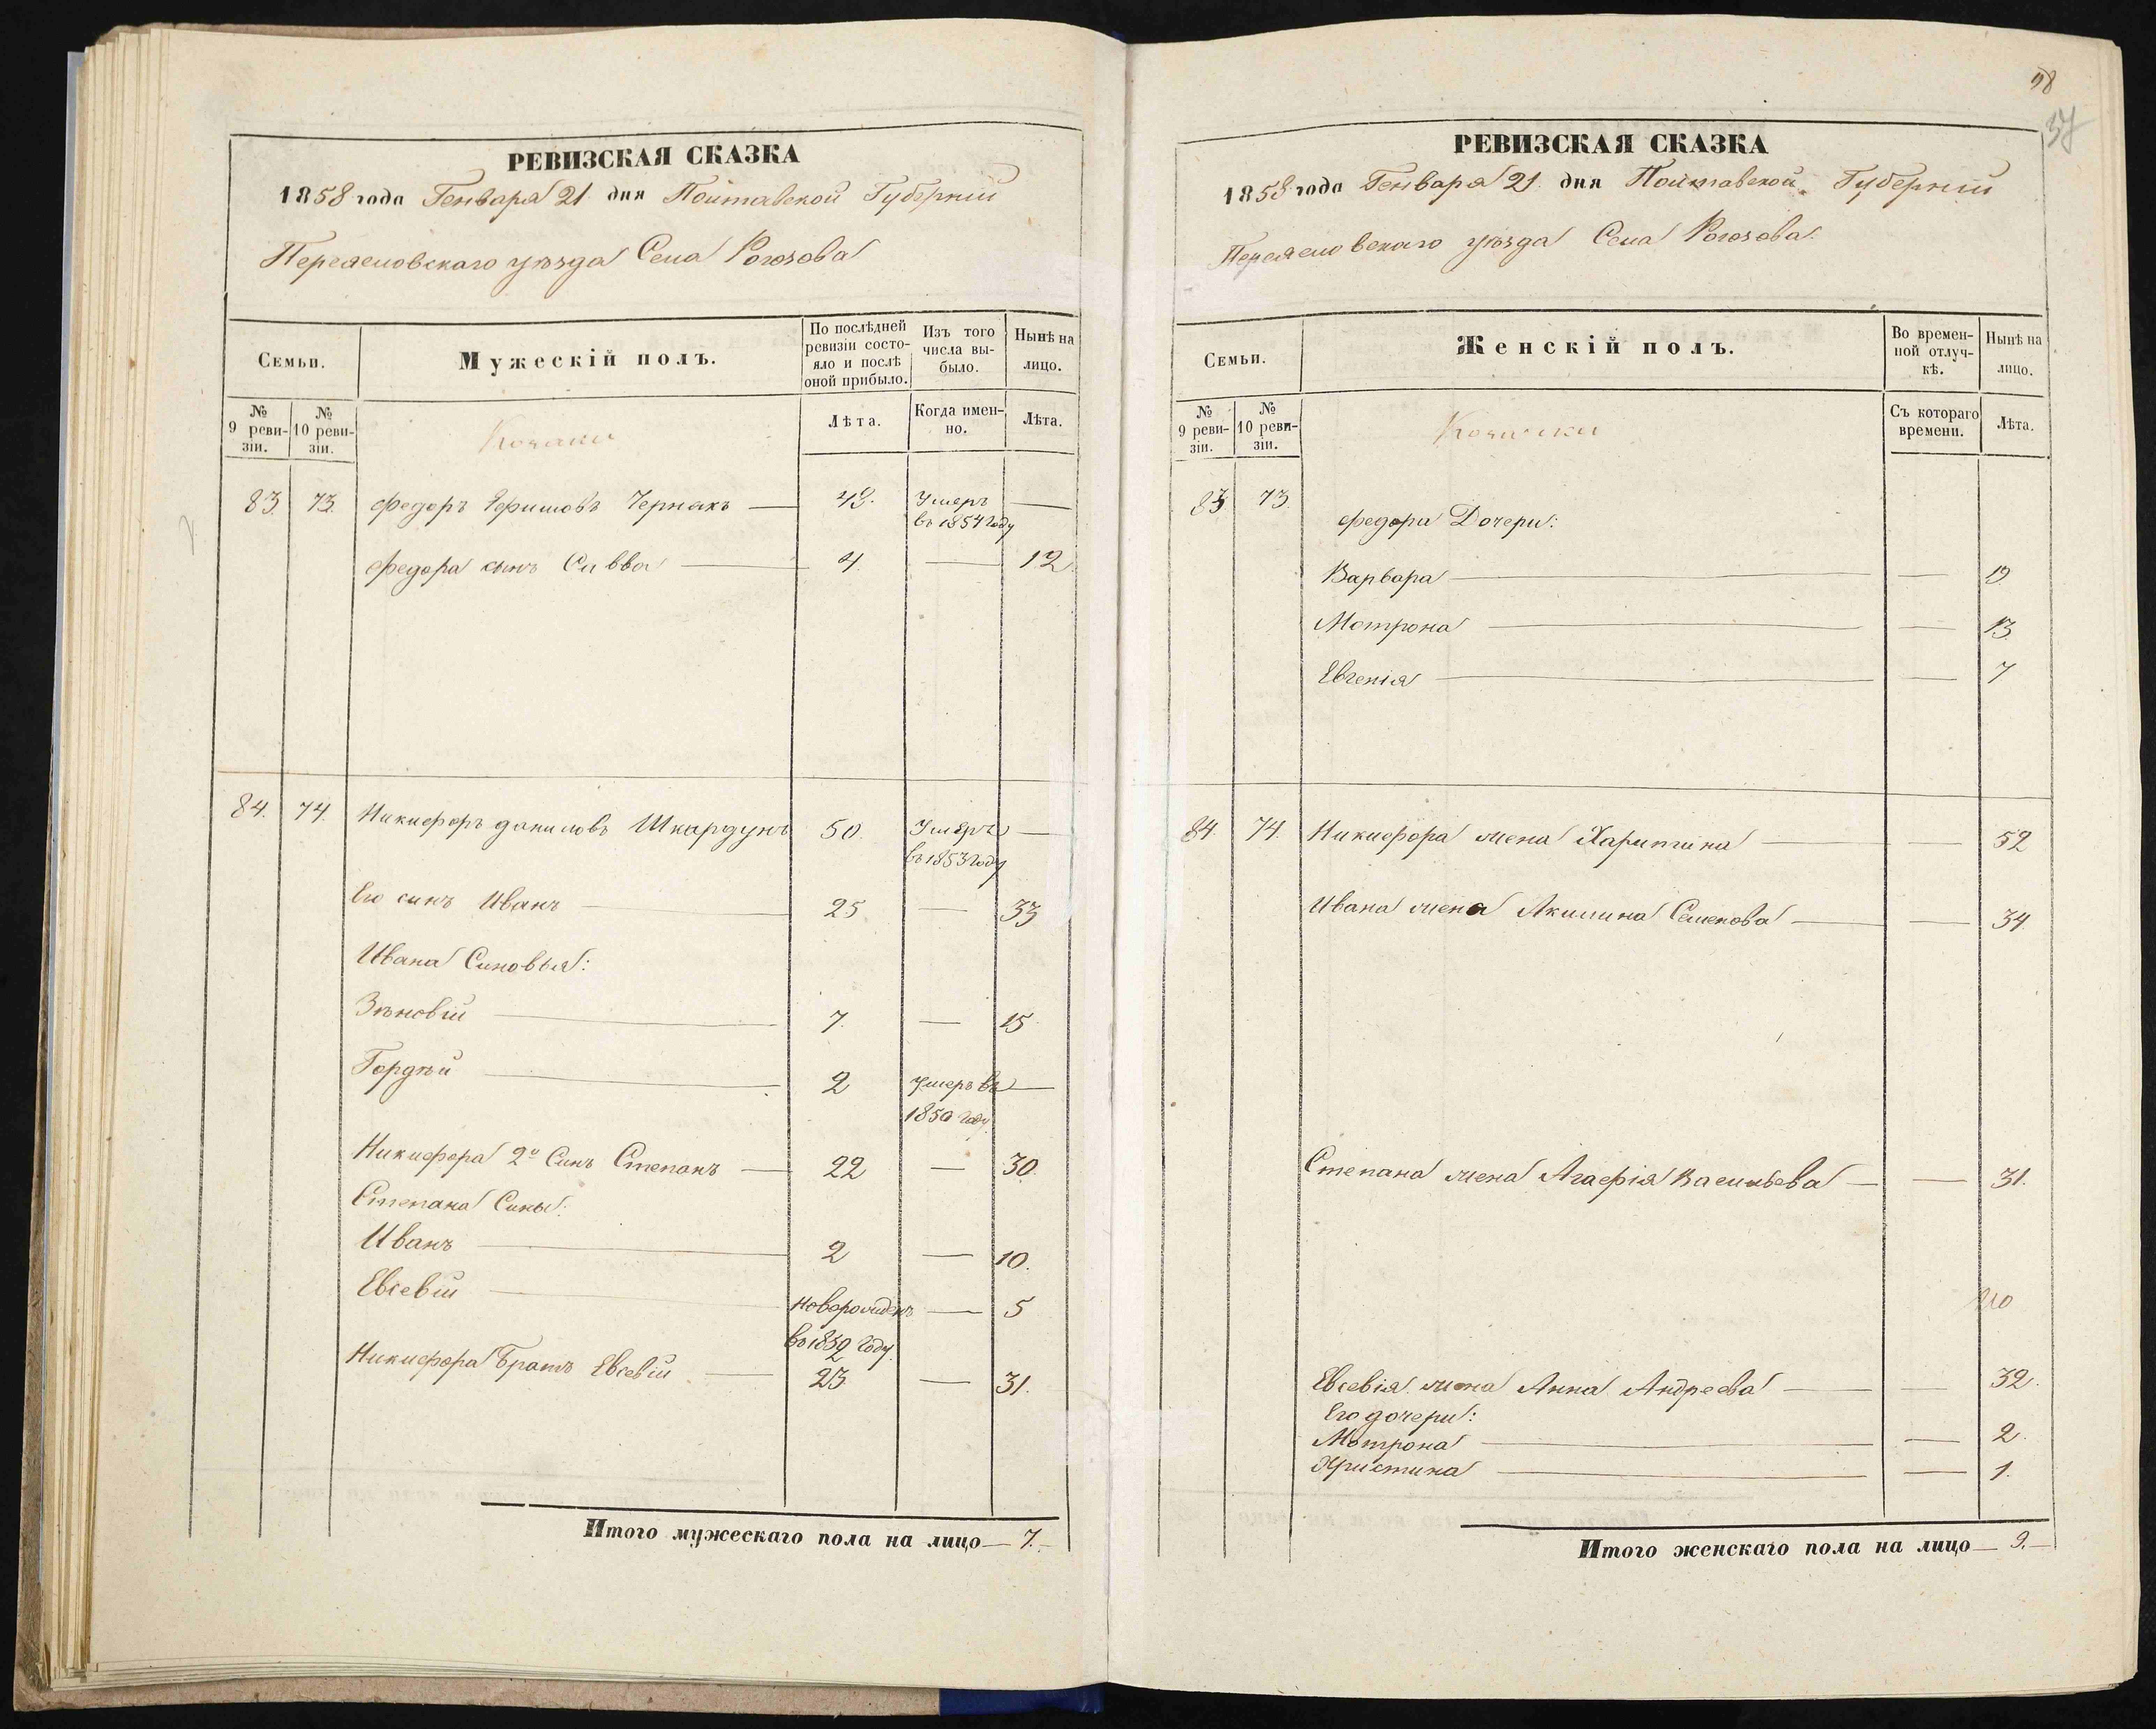 РЕВИЗСКАЯ СКАЗКА
1858 года Генваря 21 дня Полтавской Губерніи
Переяславскаго уѣзда Села Рогозова
Семьи.
Мужескій полъ.
По послѣдней ревизіи состояло и послѣ оной прибыло.
Изъ того числа выбыло.
Нынѣ на лицо.
№ 9 ревизіи.
№ 10 ревизіи.
Козаки
Лѣта.
Когда именно.
Лѣта.
83 73. Федоръ Ефимовъ Чернякъ — 49. Умеръ —
въ 1854 году
Федора сынъ Савва — 4. — 12
84. 74. Никифоръ Даниловъ Шкардунъ 50. Умеръ —
въ 1853 году
Его синъ Иванъ — 25 — 33
Ивана Синовья:
Зѣновій — 7. — 15
Гордѣй — 2 умеръ въ —
1850 году
Никифора 2й Синъ Степанъ — 22 — 30.
Степана Сины:
Иванъ — 2 — 10.
Евсевій — новорожденъ — 5
въ 1852 году.
Никифора Братъ Евсевій — 23 — 31.
Итого мужескаго пола на лицо — 7. —
98
37
РЕВИЗСКАЯ СКАЗКА
1858 года Генваря 21 дня Полтавской Губерніи
Переяславскаго уѣзда Села Рогозова.
Семьи.
Женскій полъ.
Во временной отлучкѣ.
Нынѣ на лицо.
№ 9 ревизіи.
№ 10 ревизіи.
Козачки
Съ котораго времени.
Лѣта.
83 73.
Федора Дочери:
Варвара — — 19
Мотрона — — 13
Евгенія — — 7
84. 74. Никифора жена Харитина — — 52
Ивана жена Акилина Семенова — — 34
Степана жена Агафія Васильева — — 31.
Евсевія жена Анна Андреева — — 32.
Его дочери:
Мотрона — — 2.
Христина — — 1.
Итого женскаго пола на лицо — 9. —